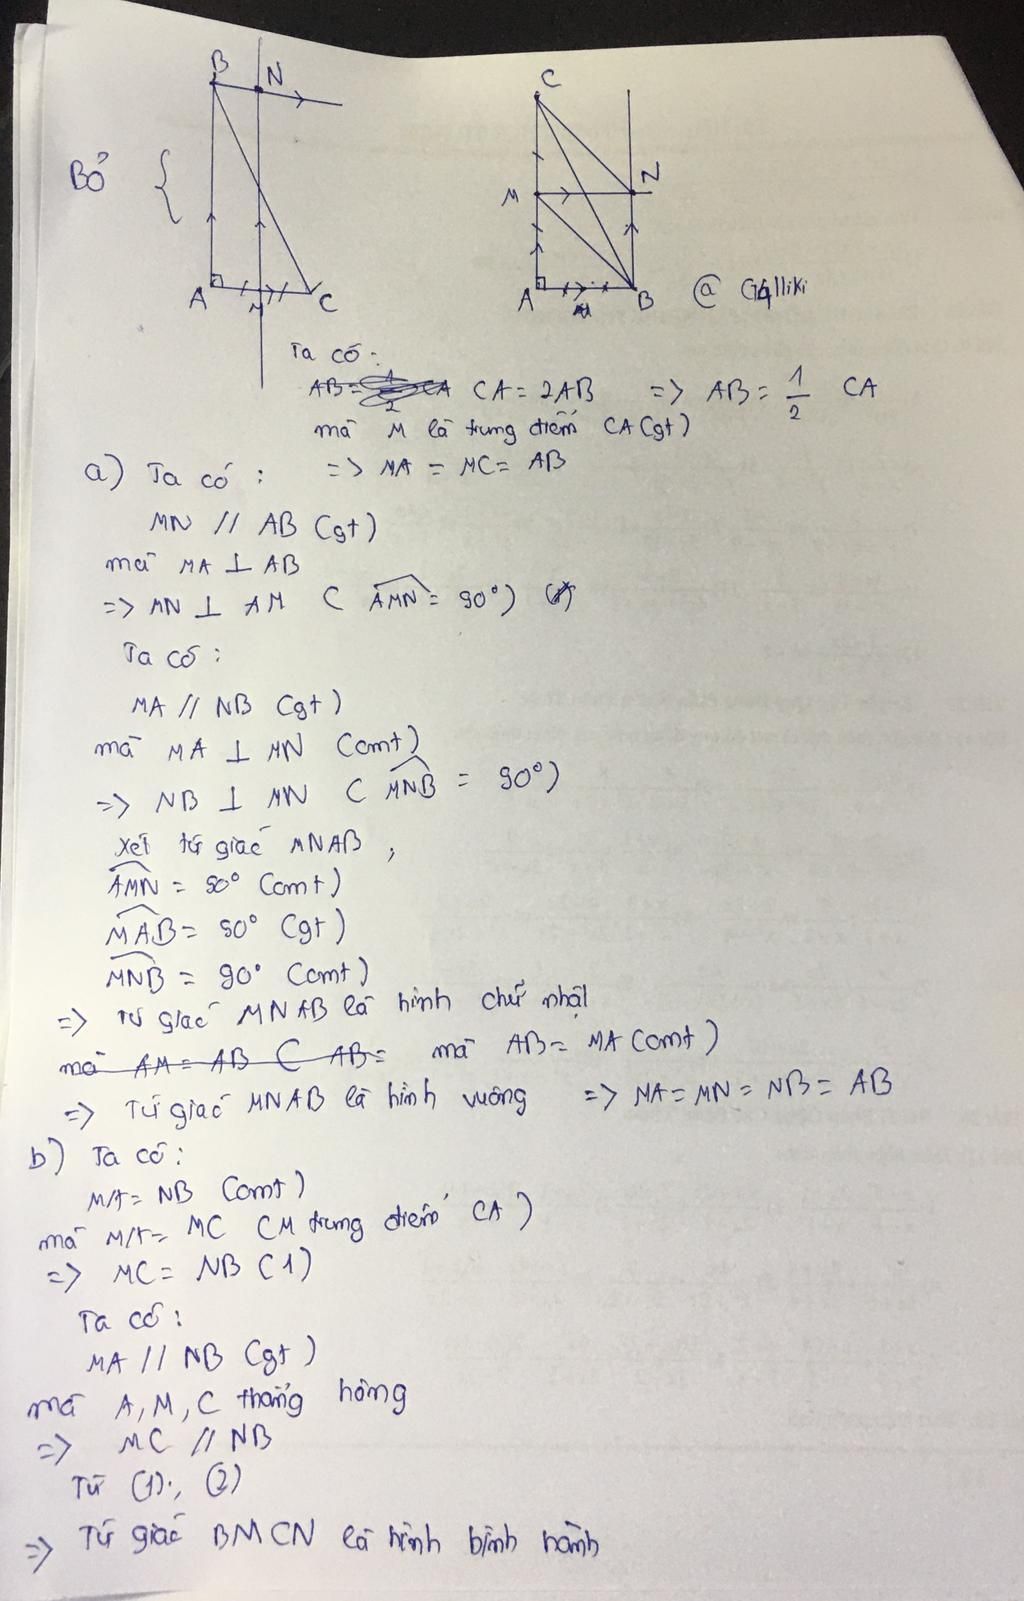 B N
C
Bỏ {
M N
A M C
A M B @ G4lliki
Ta có:
AB = 1/2 CA CA = 2AB => AB = 1/2 CA
mà M là trung điểm CA (gt)
=> MA = MC = AB
a) Ta có:
MN // AB (gt)
mà MA ⊥ AB
=> MN ⊥ AM (AMN = 90°)
Ta có:
MA // NB (gt)
mà MA ⊥ MN (cmt)
=> NB ⊥ MN (MNB = 90°)
Xét tứ giác MNAB,
AMN = 90° (cmt)
MAB = 90° (gt)
MNB = 90° (cmt)
=> Tứ giác MNAB là hình chữ nhật
mà AM = AB ( AB = mà AB = MA (cmt)
=> Tứ giác MNAB là hình vuông => MA = MN = NB = AB
b) Ta có:
MA = NB (cmt)
mà MA = MC (M trung điểm CA)
=> MC = NB (1)
Ta có:
MA // NB (gt)
mà A, M, C thẳng hàng
=> MC // NB
Từ (1), (2)
=> Tứ giác BMCN là hình bình hành